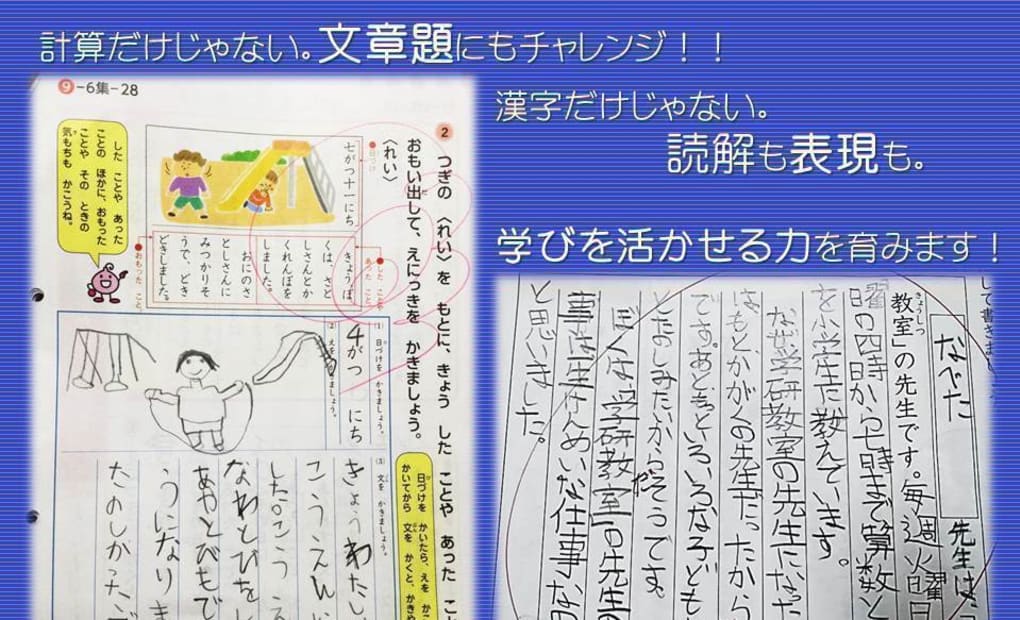 計算だけじゃない。文章題にもチャレンジ！！
漢字だけじゃない。
読解も表現も。
学びを活かせる力を育みます！
9-6集-28
2
つぎの 〈れい〉を もとに、きょう した ことや あった こ
おもい出して、えにっきを かきましょう。
〈れい〉
●日づけ
七がつ十一にち
●した ことや
あった こと
きょう、ぼ
くは、さと
しさんとか
くれんぼを
しました。
おにのさ
としさんに
みつかりそ
うで、どき
どきしました。
●おもった こと
した ことや あった
ことの ほかに、おもった
ことや その ときの
気もちも かこうね。
(1) 日づけを かきましょう。
4がつ にち
(2) えを かきましょう。
(3) 文を かきましょう。
きょうわたし
こうえんに
した。こう
なわとびを
あやとびもで
うになりま
たのしかった
日づけを かいたら、えを
かいてから 文を かくと、かきや
して書きま
なべた
先生は
教室」の先生です。毎週火曜日
きょうしつ
曜の四時から七時まで算数と
を小学生に教えています。
なぜ学研教室の先生になった
はもとかがくの先生だったから
です。あともっといろいろな子ども
としたのしみたいからだそうです。
ぼくは、学研教室の先生の
事は生けんめいな仕事なの
と思いました。